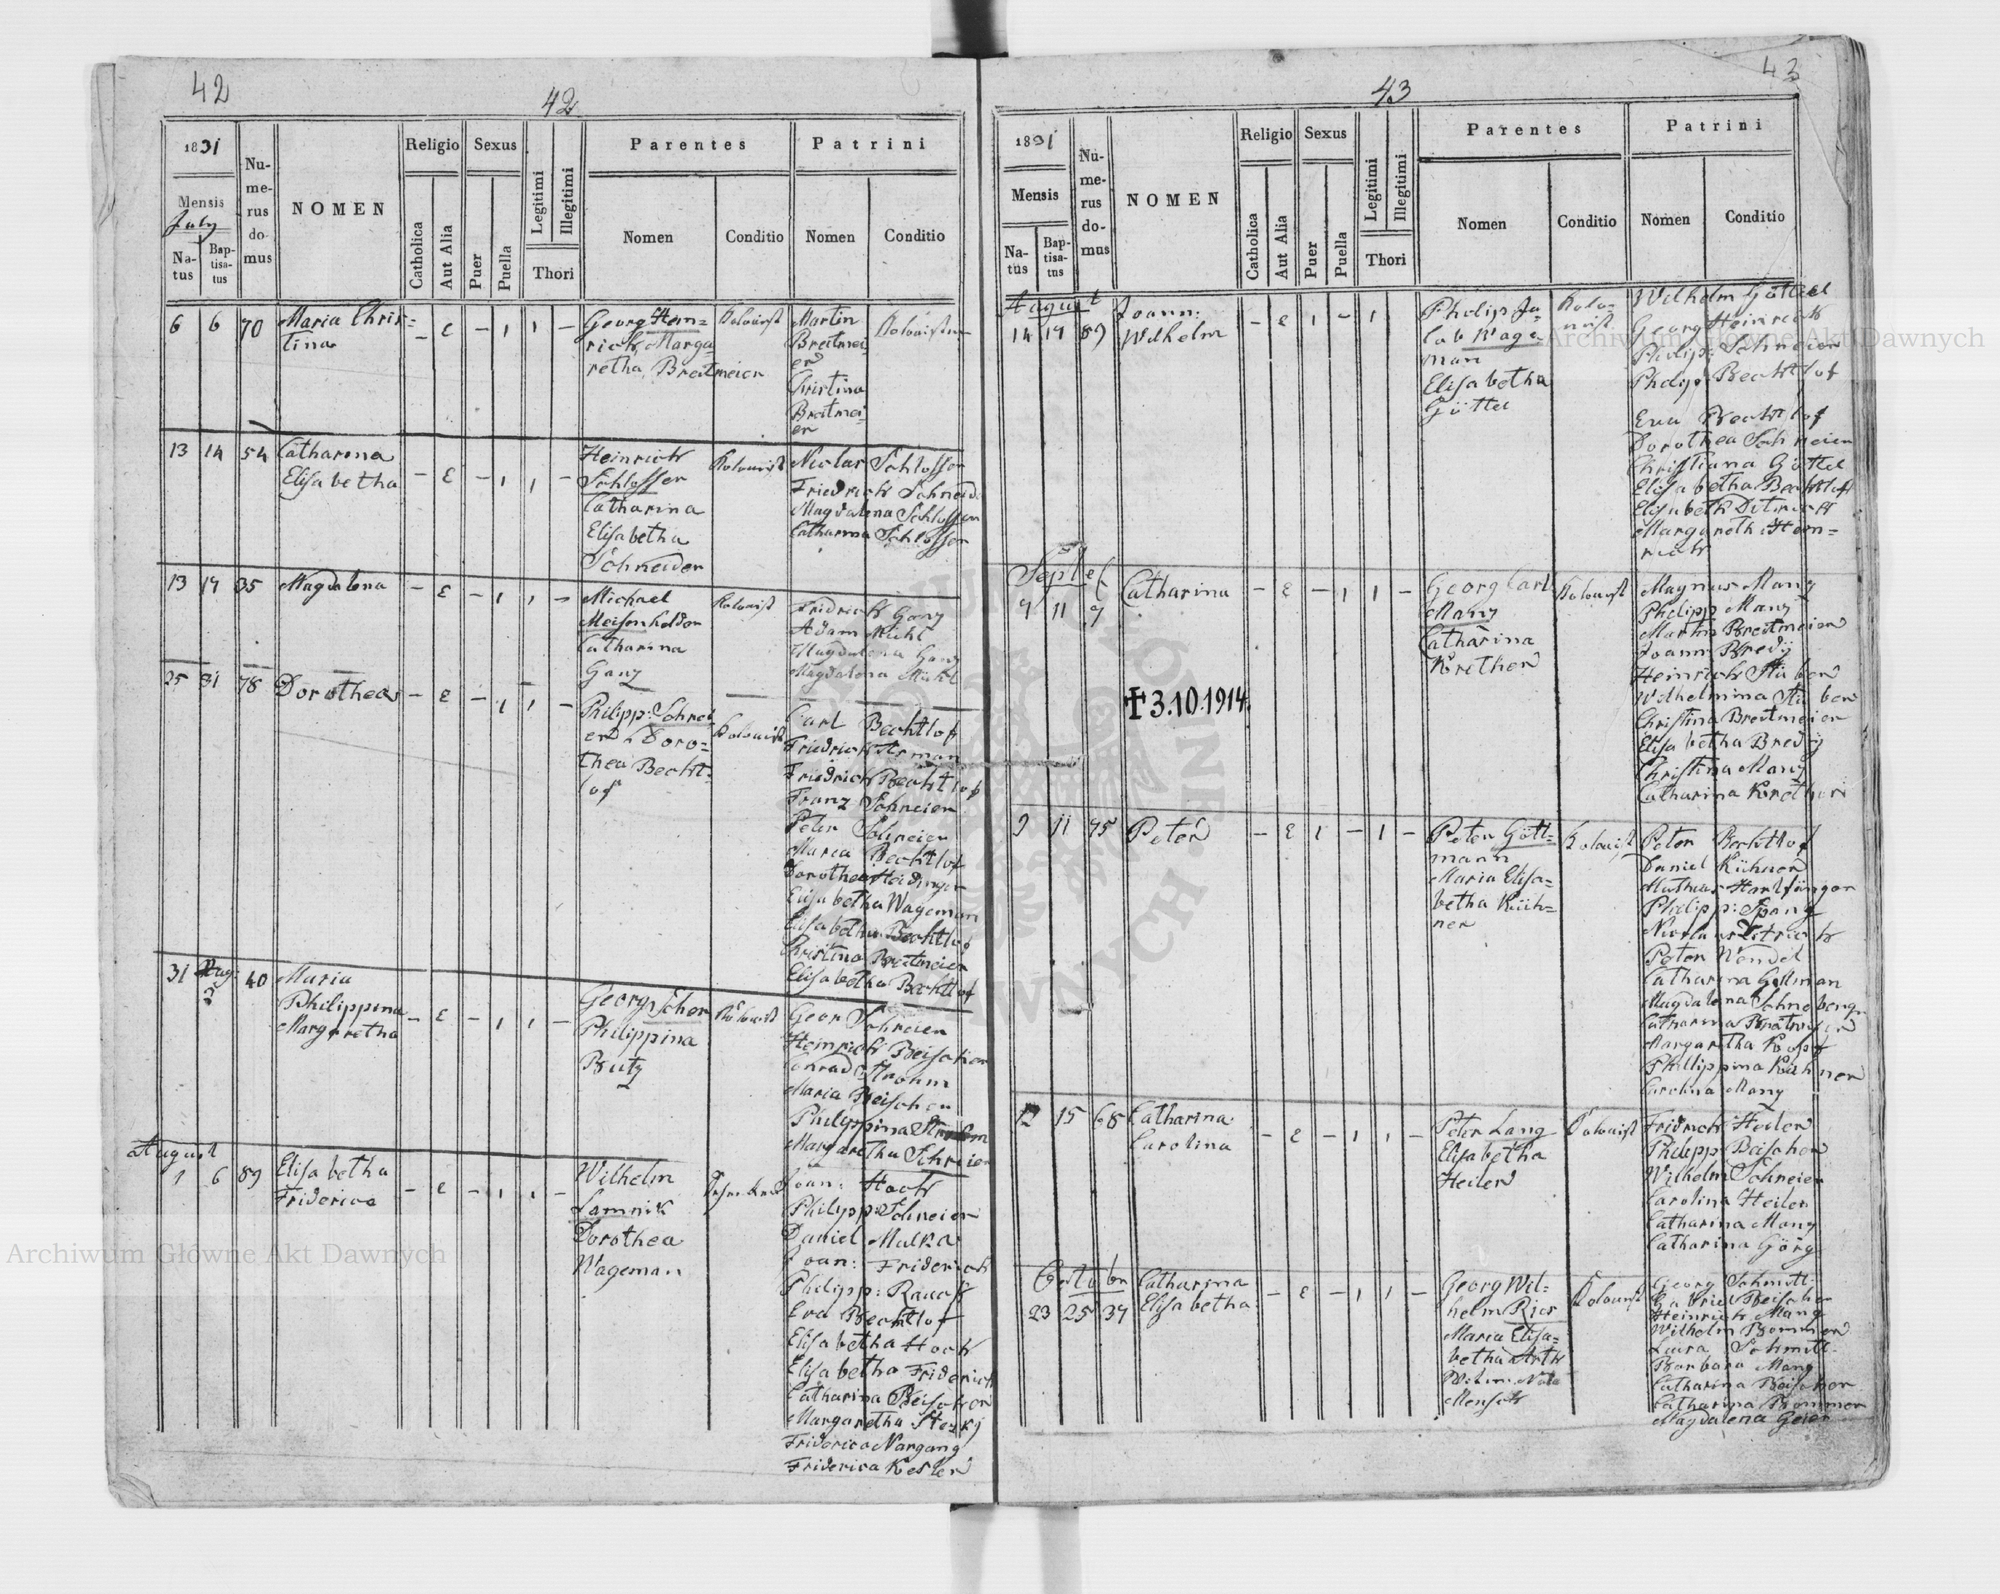 42
42
1831
Mensis
July
Natus
Baptisatus
Numerus domus
NOMEN
Religio
Catholica
Aut Alia
Sexus
Puer
Puella
Legitimi
Illegitimi
Thori
Parentes
Nomen
Conditio
Patrini
Nomen
Conditio
6 6 70 Maria Chris=
tina
Georg Hein=
rich, Marga=
retha Breitmeier
Kolonist
Martin
Breitmei-
er
Christina
Breitmei-
er
13 14 54 Catharina
Elisabetha
Heinrich
Schlosser
Catharina
Elisabetha
Schneider
Kolonist
Nicolas Schlosser
Friedrich Schneid
Magdalena Schlosser
Catharina Schlosser
13 17 35 Magdalena
Michael
Meisenhelder
Catharina
Ganz
Kolonist
Fridrich Ganz
Adam Michl
Magdalena Ganz
Magdalena Michl
25 31 78 Dorothea
Philipp: Schrei
er, Doro=
thea Becht-
lof
Kolonist
Carl Bechtlof
Friedrich Arman
Friedrich Bechtlof
Franz Schreier
Peter Schreier
Maria Bechtlof
Dorothea Heidinger
Elisabetha Wageman
Elisabetha Bechtlof
Christina Breitmeier
Elisabetha Bechtlof
31 Aug 2 40 Maria
Philippina
Margaretha
Georg Scher
Philippina
Butz
Kolonist
Geor Schreier
Heinrich Beischer
Conrad Strohm
Maria Beischer
Philippina Strohm
Margaretha Schreier
August
1 6 89 Elisabetha
Friderica
Wilhelm
Lamnik
Dorothea
Wageman
Joan: Hoch
Philipp: Schreier
Daniel Mulka
Joan: Friderich
Philipp: Rauch
Eva Bechtlof
Elisabetha Hoch
Elisabetha Friderich
Catharina Beischer
Margaretha Steskj
Friderica Nargang
Friderica Kesler
43
43
1831
Mensis
Natus
Baptisatus
Numerus domus
NOMEN
Religio
Catholica
Aut Alia
Sexus
Puer
Puella
Legitimi
Illegitimi
Thori
Parentes
Nomen
Conditio
Patrini
Nomen
Conditio
August
14 17 89 Joann:
Wilhelm
Philip Ja-
cob Wage-
man
Elisabetha
Göttel
Kolo-
nist
Wilhelm Göttel
Georg Heinrich
Philip: Schreier
Philip: Bechtlof
Eva Bechtlof
Dorothea Schreier
Christiana Göttel
Elisabetha Bechtlof
Elisabeth Ditrich
Margareth Hein-
rich
Septe
9 11 9 Catharina
Georg Carl
Manz
Catharina
Krether
Kolonist
Magnus Manz
Philipp Manz
Martin Breitmeier
Joann Bredÿ
Heinrich Stüber
Wilhelmina Stüber
Christina Breitmeier
Elisabetha Bredÿ
Christina Manz
Catharina Krether
✝3.10.1914.
9 11 75 Peter
Peter Gött=
mann
Maria Elisa=
betha Küh=
ner
Kolonist
Peter Bechtlof
Daniel Kühner
Mathias Harlfinger
Philipp: Spang
Nicolaus Ditrich
Peter Wendel
Catharina Gottman
Magdalena Schneberger
Margaretha Kopf
Phillippina Kühner
Carolina Manz
12 15 68 Catharina
Carolina
Peter Lang
Elisabetha
Heiler
Kolonist
Fridrich Heiler
Philipp Beischer
Wilhelm Schreier
Carolina Heiler
Catharina Manz
Catharina Görg
October
23 25 37 Catharina
Elisabetha
Georg Wil-
helm Rjes
Maria Elisa-
betha Arth
Kolonist
Georg Schmitt
Gabriel Beischer
Heinrich Mang
Wilhelm Bommer
Luisa Schmitt
Barbara Mang
Catharina Beischer
Catharina Bommer
Magdalena Geier
Archiwum Główne Akt Dawnych
Archiwum Główne Akt Dawnych